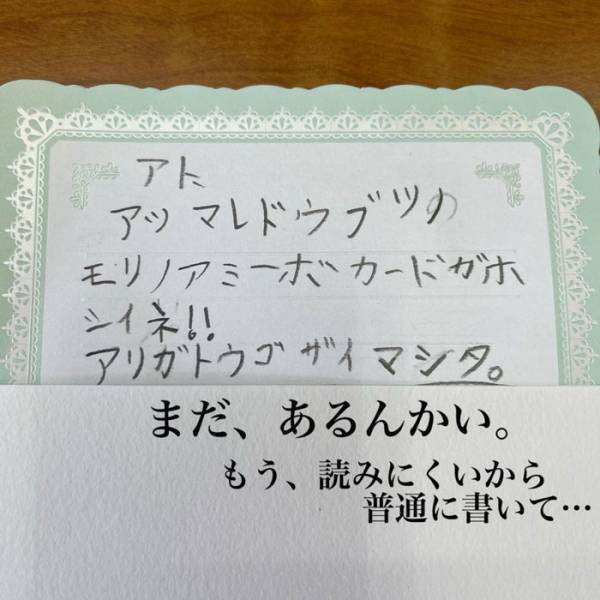 アト
アツマレドウブツの
モリノアミーボカードガホ
シイネ!!
アリガトウゴザイマシタ。
まだ、あるんかい。
もう、読みにくいから
普通に書いて…